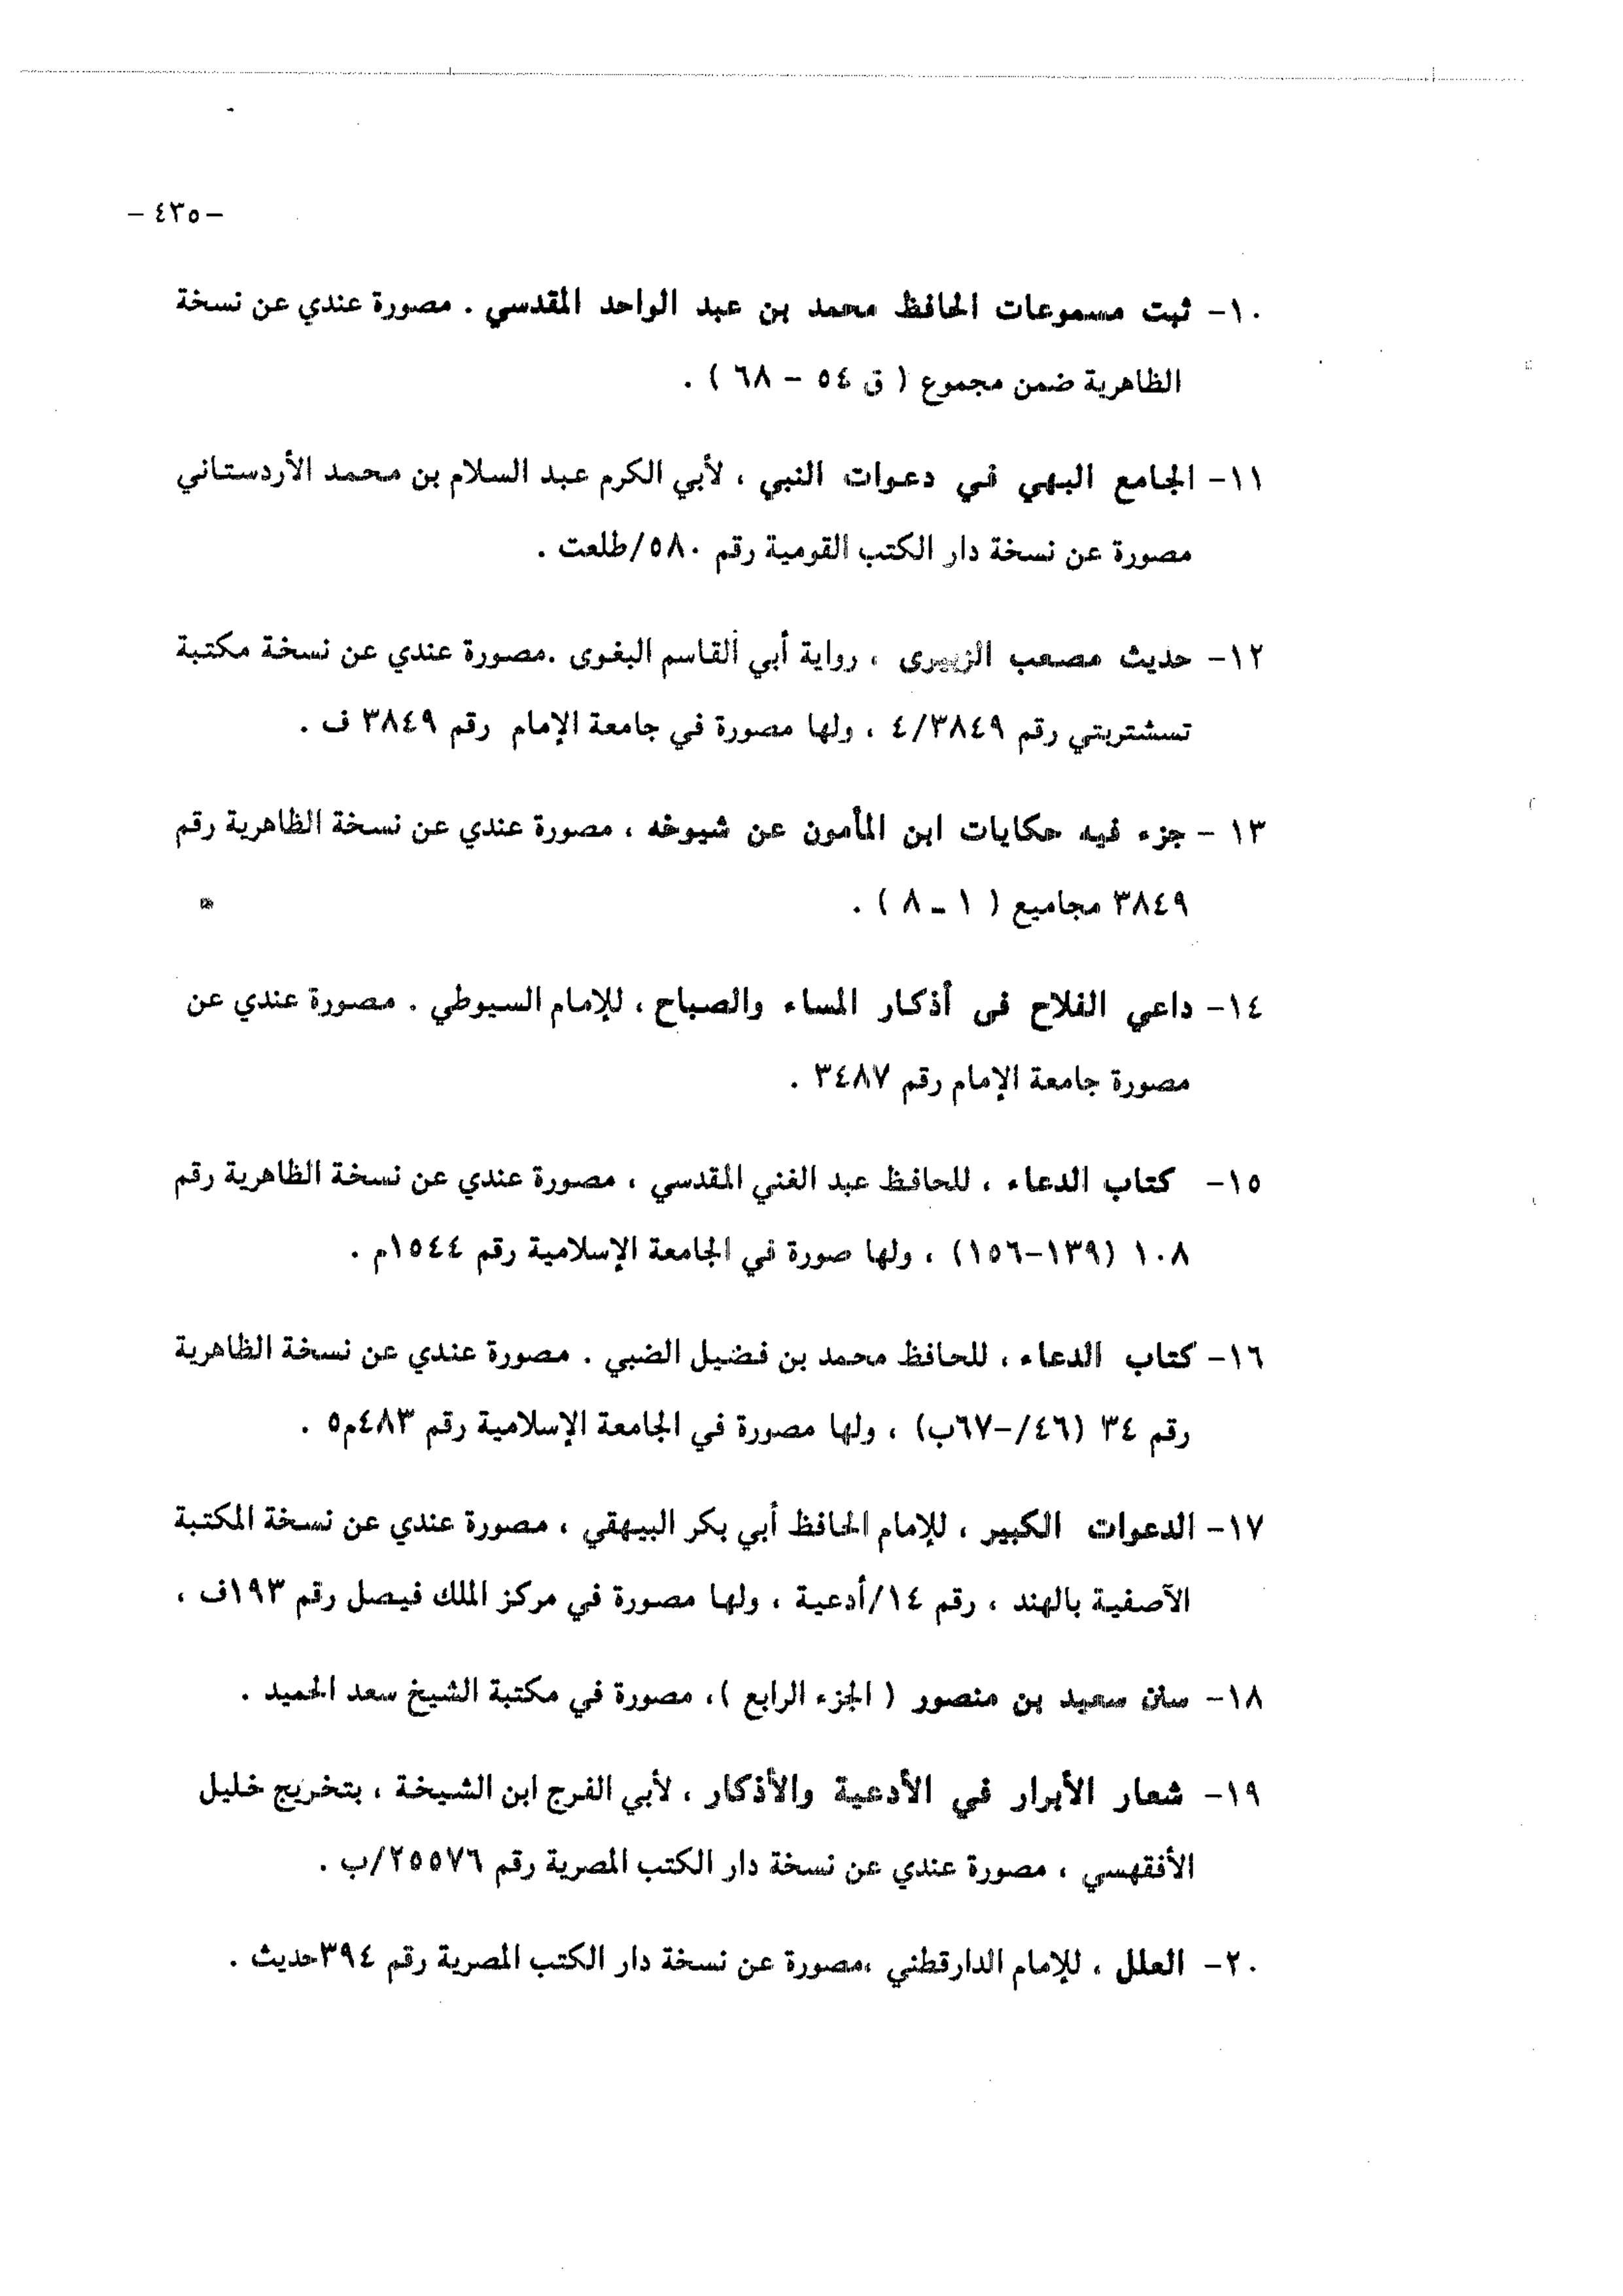 - ٤٣٥ -
١٠- ثبت مسموعات الحافظ محمد بن عبد الواحد المقدسي . مصورة عندي عن نسخة
الظاهرية ضمن مجموع ( ق ٥٤ - ٦٨ ) .
١١- الجامع البهي في دعوات النبي ، لأبي الكرم عبد السلام بن محمد الأردستاني
مصورة عن نسخة دار الكتب القومية رقم ٥٨٠/طلعت .
١٢- حديث مصعب الزبيرى ، رواية أبي القاسم البغوى .مصورة عندي عن نسخة مكتبة
تسشتربتي رقم ٤/٣٨٤٩ ، ولها مصورة في جامعة الإمام رقم ٣٨٤٩ ف .
١٣ - جزء فيه حكايات ابن المأمون عن شيوخه ، مصورة عندي عن نسخة الظاهرية رقم
٣٨٤٩ مجاميع ( ١ - ٨ ) .
١٤- داعي الفلاح فى أذكار المساء والصباح ، للإمام السيوطي . مصورة عندي عن
مصورة جامعة الإمام رقم ٣٤٨٧ .
١٥- كتاب الدعاء ، للحافظ عبد الغني المقدسي ، مصورة عندي عن نسخة الظاهرية رقم
١٠٨ (١٣٩-١٥٦) ، ولها صورة في الجامعة الإسلامية رقم ١٥٤٤م .
١٦- كتاب الدعاء ، للحافظ محمد بن فضيل الضبي . مصورة عندي عن نسخة الظاهرية
رقم ٣٤ (٤٦/-٦٧ب) ، ولها مصورة في الجامعة الإسلامية رقم ٤٨٣م٥ .
١٧- الدعوات الكبير ، للإمام الحافظ أبي بكر البيهقي ، مصورة عندي عن نسخة المكتبة
الآصفية بالهند ، رقم ١٤/أدعية ، ولها مصورة في مركز الملك فيصل رقم ١٩٣ف ،
١٨- سنن سعيد بن منصور ( الجزء الرابع )، مصورة في مكتبة الشيخ سعد الحميد .
١٩- شعار الأبرار في الأدعية والأذكار ، لأبي الفرج ابن الشيخة ، بتخريج خليل
الأفقهسي ، مصورة عندي عن نسخة دار الكتب المصرية رقم ٢٥٥٧٦/ب .
٢٠- العلل ، للإمام الدارقطني ،مصورة عن نسخة دار الكتب المصرية رقم ٣٩٤حديث .